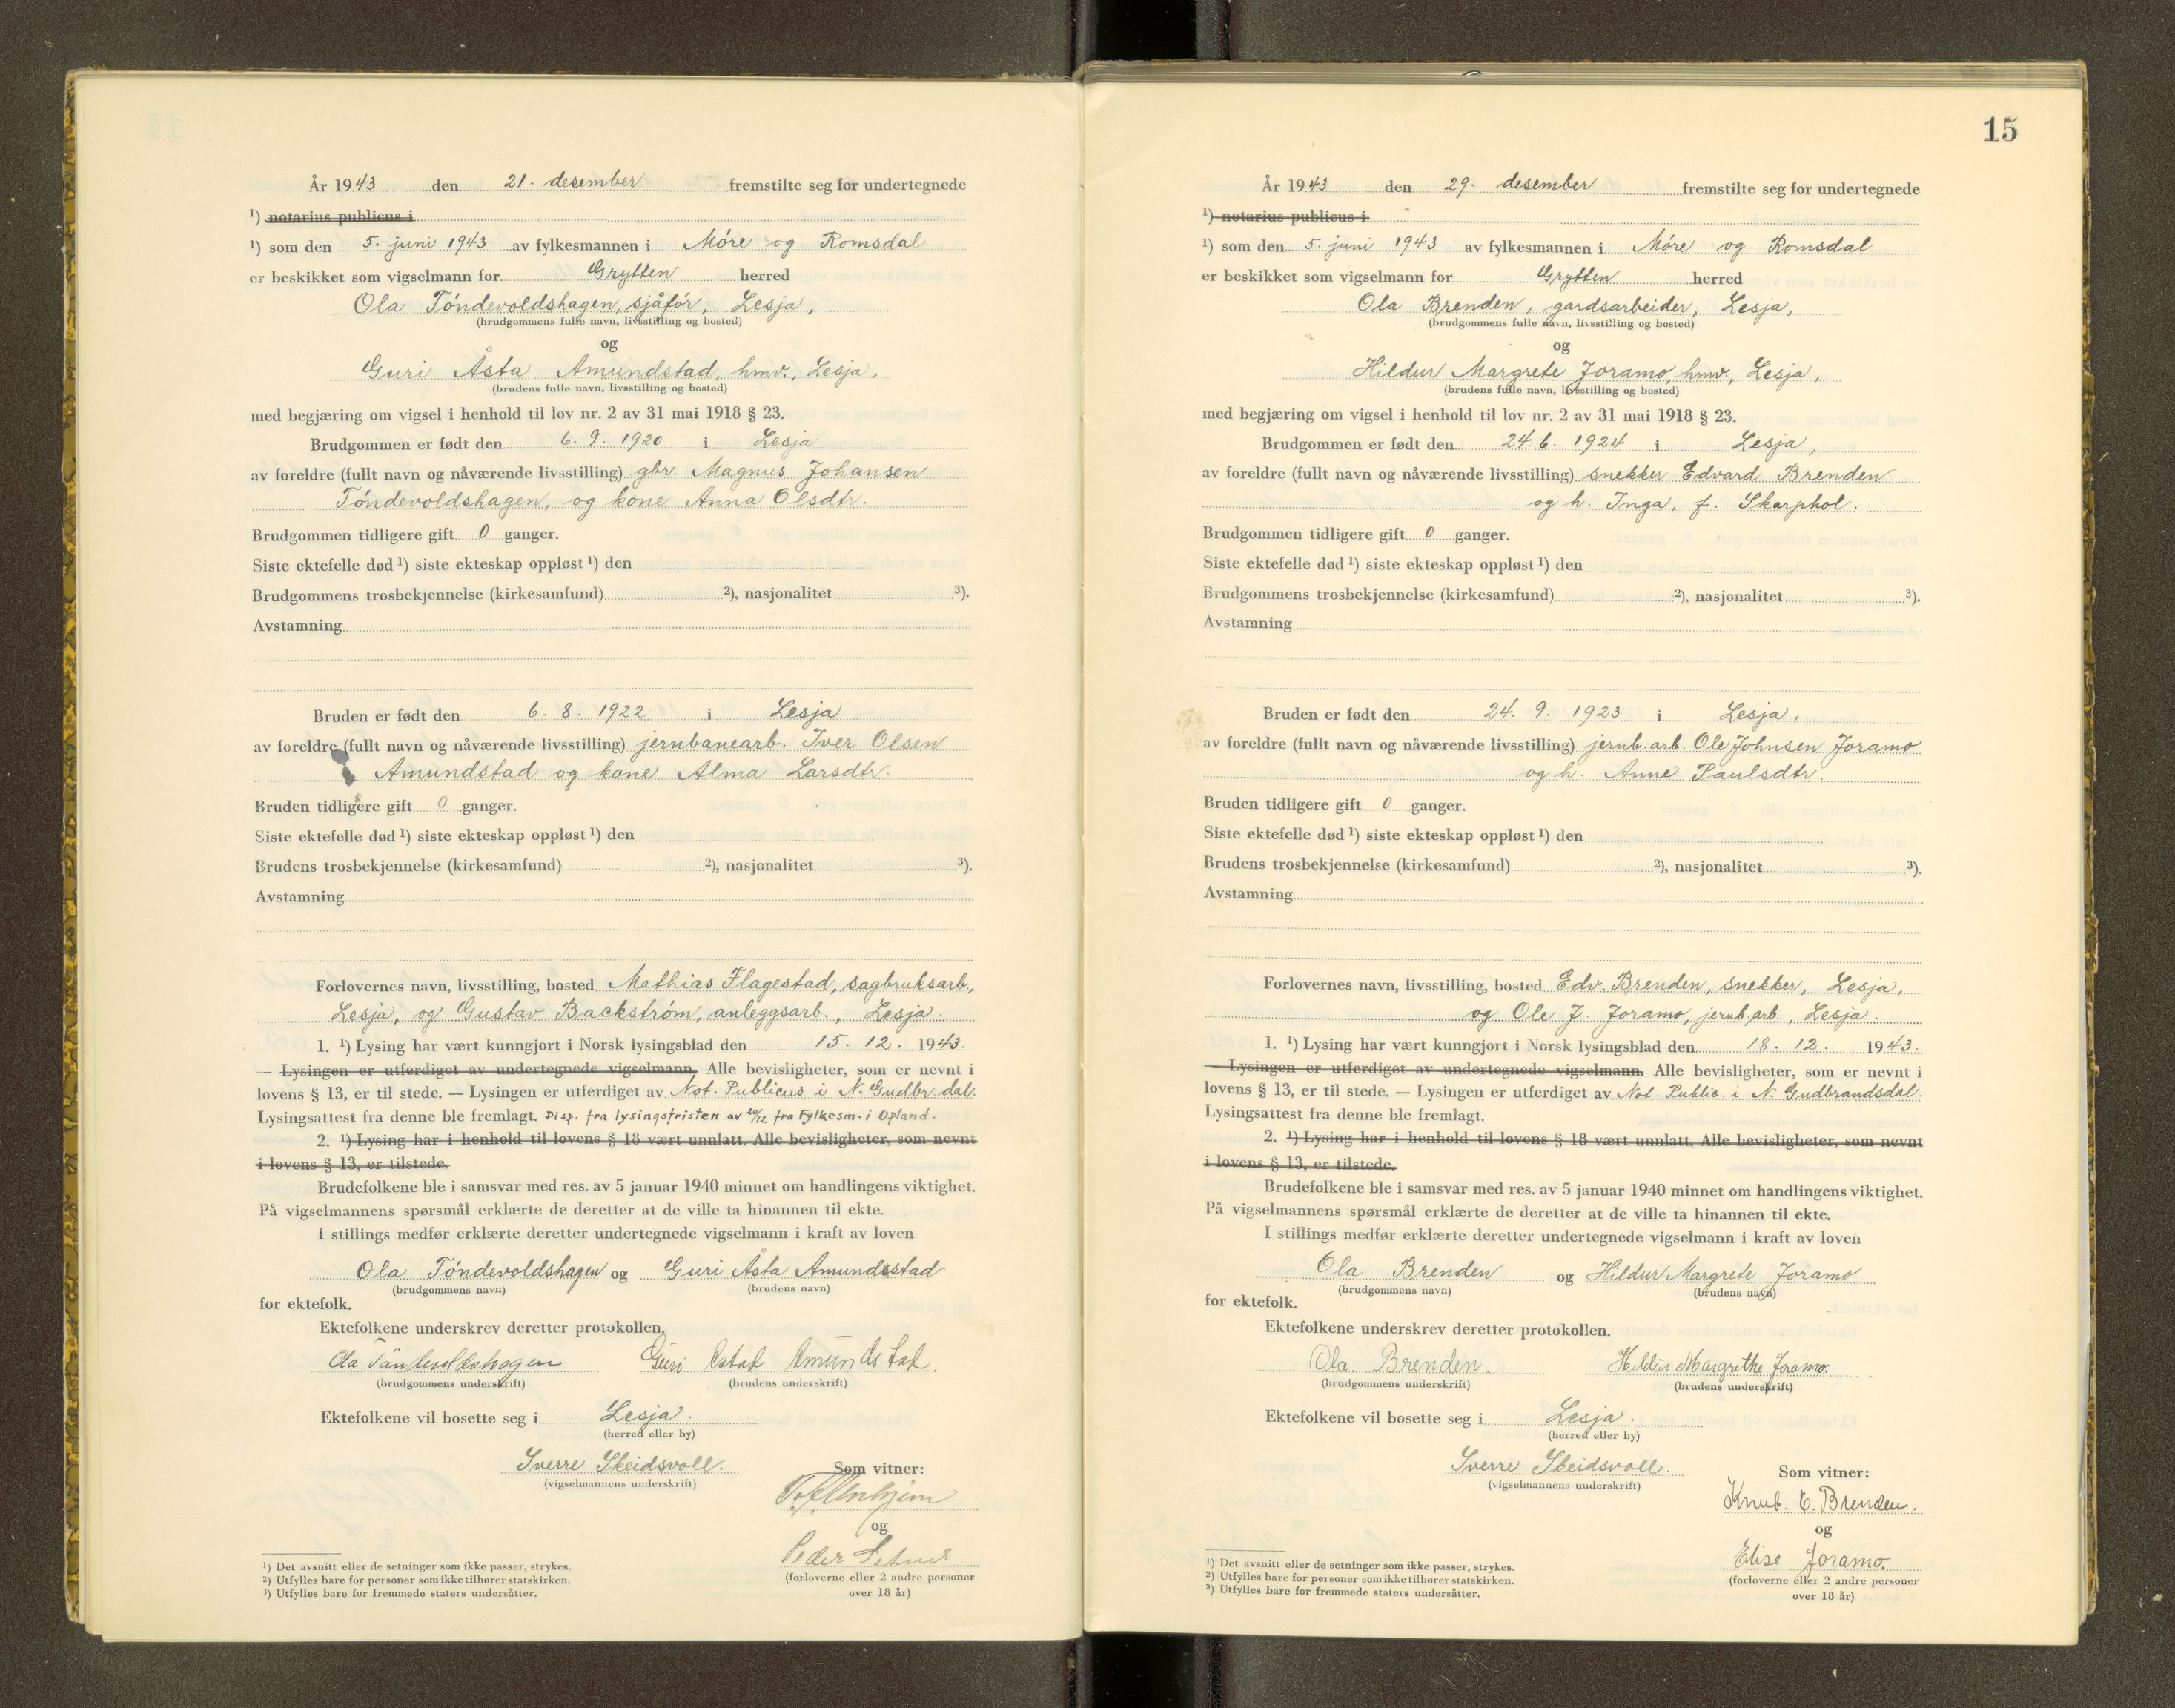 År 1943 den 21. desember fremstilte seg for undertegnede
¹) notarius publicus i
¹) som den 5. juni 1943 av fylkesmannen i Móre og Romsdal
er beskikket som vigselmann for Grytten herred
Ola Tóndevoldshagen, sjåfór, Lesja,
(brudgommens fulle navn, livsstilling og bosted)
og
Guri Åsta Amundstad, hmv., Lesja,
(brudens fulle navn, livsstilling og bosted)
med begjæring om vigsel i henhold til lov nr. 2 av 31 mai 1918 § 23.
Brudgommen er født den 6. 9. 1920 i Lesja
av foreldre (fullt navn og nåværende livsstilling) gbr. Magnus Johansen
Tóndevoldshagen, og kone Anna Olsdtr.
Brudgommen tidligere gift 0 ganger.
Siste ektefelle død ¹) siste ekteskap oppløst ¹) den
Brudgommens trosbekjennelse (kirkesamfund) ²), nasjonalitet ³).
Avstamning
Bruden er født den 6. 8. 1922 i Lesja
av foreldre (fullt navn og nåværende livsstilling) jernbanearb. Iver Olsen
Amundstad og kone Alma Larsdtr.
Bruden tidligere gift 0 ganger.
Siste ektefelle død ¹) siste ekteskap oppløst ¹) den
Brudens trosbekjennelse (kirkesamfund) ²), nasjonalitet ³).
Avstamning
Forlovernes navn, livsstilling, bosted Mathias Flagestad, sagbruksarb.,
Lesja, og Gustav Backstróm, anleggsarb., Lesja.
1. ¹) Lysing har vært kunngjort i Norsk lysingsblad den 15. 12. 1943.
— Lysingen er utferdiget av undertegnede vigselmann. Alle bevisligheter, som er nevnt i
lovens § 13, er til stede. — Lysingen er utferdiget av Not. Publicus i N. Gudbr.dal.
Lysingsattest fra denne ble fremlagt. Disp. fra lysingsfristen av 20/12 fra Fylkesm. i Opland.
2. ¹) Lysing har i henhold til lovens § 18 vært unnlatt. Alle bevisligheter, som nevnt
i lovens § 13, er tilstede.
Brudefolkene ble i samsvar med res. av 5 januar 1940 minnet om handlingens viktighet.
På vigselmannens spørsmål erklærte de deretter at de ville ta hinannen til ekte.
I stillings medfør erklærte deretter undertegnede vigselmann i kraft av loven
Ola Tóndevoldshagen og Guri Åsta Amundsstad
(brudgommens navn) (brudens navn)
for ektefolk.
Ektefolkene underskrev deretter protokollen.
Ola Guri Amundstad.
(brudgommens underskrift) (brudens underskrift)
Ektefolkene vil bosette seg i Lesja.
(herred eller by)
Sverre Skeidsvoll. Som vitner:
(vigselmannens underskrift)
og
Peder
(forloverne eller 2 andre personer
over 18 år)
¹) Det avsnitt eller de setninger som ikke passer, strykes.
²) Utfylles bare for personer som ikke tilhører statskirken.
³) Utfylles bare for fremmede staters undersåtter.
15
År 1943 den 29. desember fremstilte seg for undertegnede
¹) notarius publicus i
¹) som den 5. juni 1943 av fylkesmannen i Móre og Romsdal
er beskikket som vigselmann for Grytten herred
Ola Brenden, gardsarbeider, Lesja,
(brudgommens fulle navn, livsstilling og bosted)
og
Hildur Margrete Joramo, hmv., Lesja,
(brudens fulle navn, livsstilling og bosted)
med begjæring om vigsel i henhold til lov nr. 2 av 31 mai 1918 § 23.
Brudgommen er født den 24. 6. 1924 i Lesja,
av foreldre (fullt navn og nåværende livsstilling) snekker Edvard Brenden
og h. Inga, f. Skarphol.
Brudgommen tidligere gift 0 ganger.
Siste ektefelle død ¹) siste ekteskap oppløst ¹) den
Brudgommens trosbekjennelse (kirkesamfund) ²), nasjonalitet ³).
Avstamning
Bruden er født den 24. 9. 1923 i Lesja,
av foreldre (fullt navn og nåværende livsstilling) jernb.arb. Ole Johnsen Joramo
og h. Anne Paulsdtr.
Bruden tidligere gift 0 ganger.
Siste ektefelle død ¹) siste ekteskap oppløst ¹) den
Brudens trosbekjennelse (kirkesamfund) ²), nasjonalitet ³).
Avstamning
Forlovernes navn, livsstilling, bosted Edv. Brenden, snekker, Lesja,
og Ole J. Joramo, jernb.arb., Lesja.
1. ¹) Lysing har vært kunngjort i Norsk lysingsblad den 18. 12. 1943.
— Lysingen er utferdiget av undertegnede vigselmann. Alle bevisligheter, som er nevnt i
lovens § 13, er til stede. — Lysingen er utferdiget av Not. Public. i N. Gudbrandsdal.
Lysingsattest fra denne ble fremlagt.
2. ¹) Lysing har i henhold til lovens § 18 vært unnlatt. Alle bevisligheter, som nevnt
i lovens § 13, er tilstede.
Brudefolkene ble i samsvar med res. av 5 januar 1940 minnet om handlingens viktighet.
På vigselmannens spørsmål erklærte de deretter at de ville ta hinannen til ekte.
I stillings medfør erklærte deretter undertegnede vigselmann i kraft av loven
Ola Brenden og Hildur Margrete Joramo
(brudgommens navn) (brudens navn)
for ektefolk.
Ektefolkene underskrev deretter protokollen.
Ola Brenden. Hildur Margrethe Joramo.
(brudgommens underskrift) (brudens underskrift)
Ektefolkene vil bosette seg i Lesja.
(herred eller by)
Sverre Skeidsvoll. Som vitner:
(vigselmannens underskrift)
Knut. E. Brenden.
og
Elise Joramo.
(forloverne eller 2 andre personer
over 18 år)
¹) Det avsnitt eller de setninger som ikke passer, strykes.
²) Utfylles bare for personer som ikke tilhører statskirken.
³) Utfylles bare for fremmede staters undersåtter.